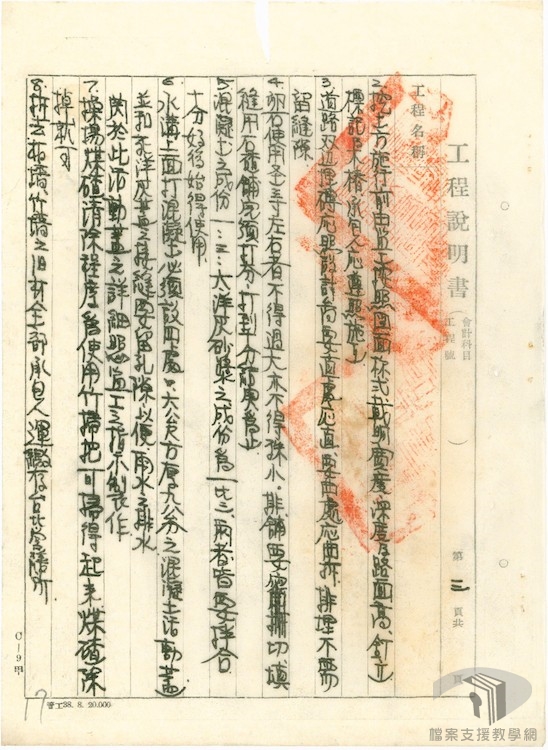 工程說明書（會計科目 工程號 ） 第三頁共 頁
工程名稱
2.挖土方施行前由監工按照圖面樣式載明廣度、深度及路面高、釘立
標記具木樁、承包人應遵照施工
3.道路双边埋磚应照設計高要直處应直、要曲處应曲、排埋不需
留縫隙
4.卵石使用 左右者不得過大亦不得殊小、排鋪要 切填
縫用石 鋪完須打夯、打到十分 為止
5.混凝土之成份一:三:六洋灰砂漿之成份為一比三兩者皆要拌合
十分好後始得使用
6.水溝上面打混凝土必須設四處0.六公尺方厚九公分之混凝土活動蓋
並扣 洋灰蓋之 縫要留孔隙以便雨水之排水
関於此活動蓋之詳細照監工之指示製作
7.操場煤碴清除程度為使用竹掃把可掃得起來煤碴除
掉就可
8.拆去板牆、竹牆之旧材全部承包人運繳存台北
C—9甲
普工38. 8. 20.000
17
檔案支援教學網